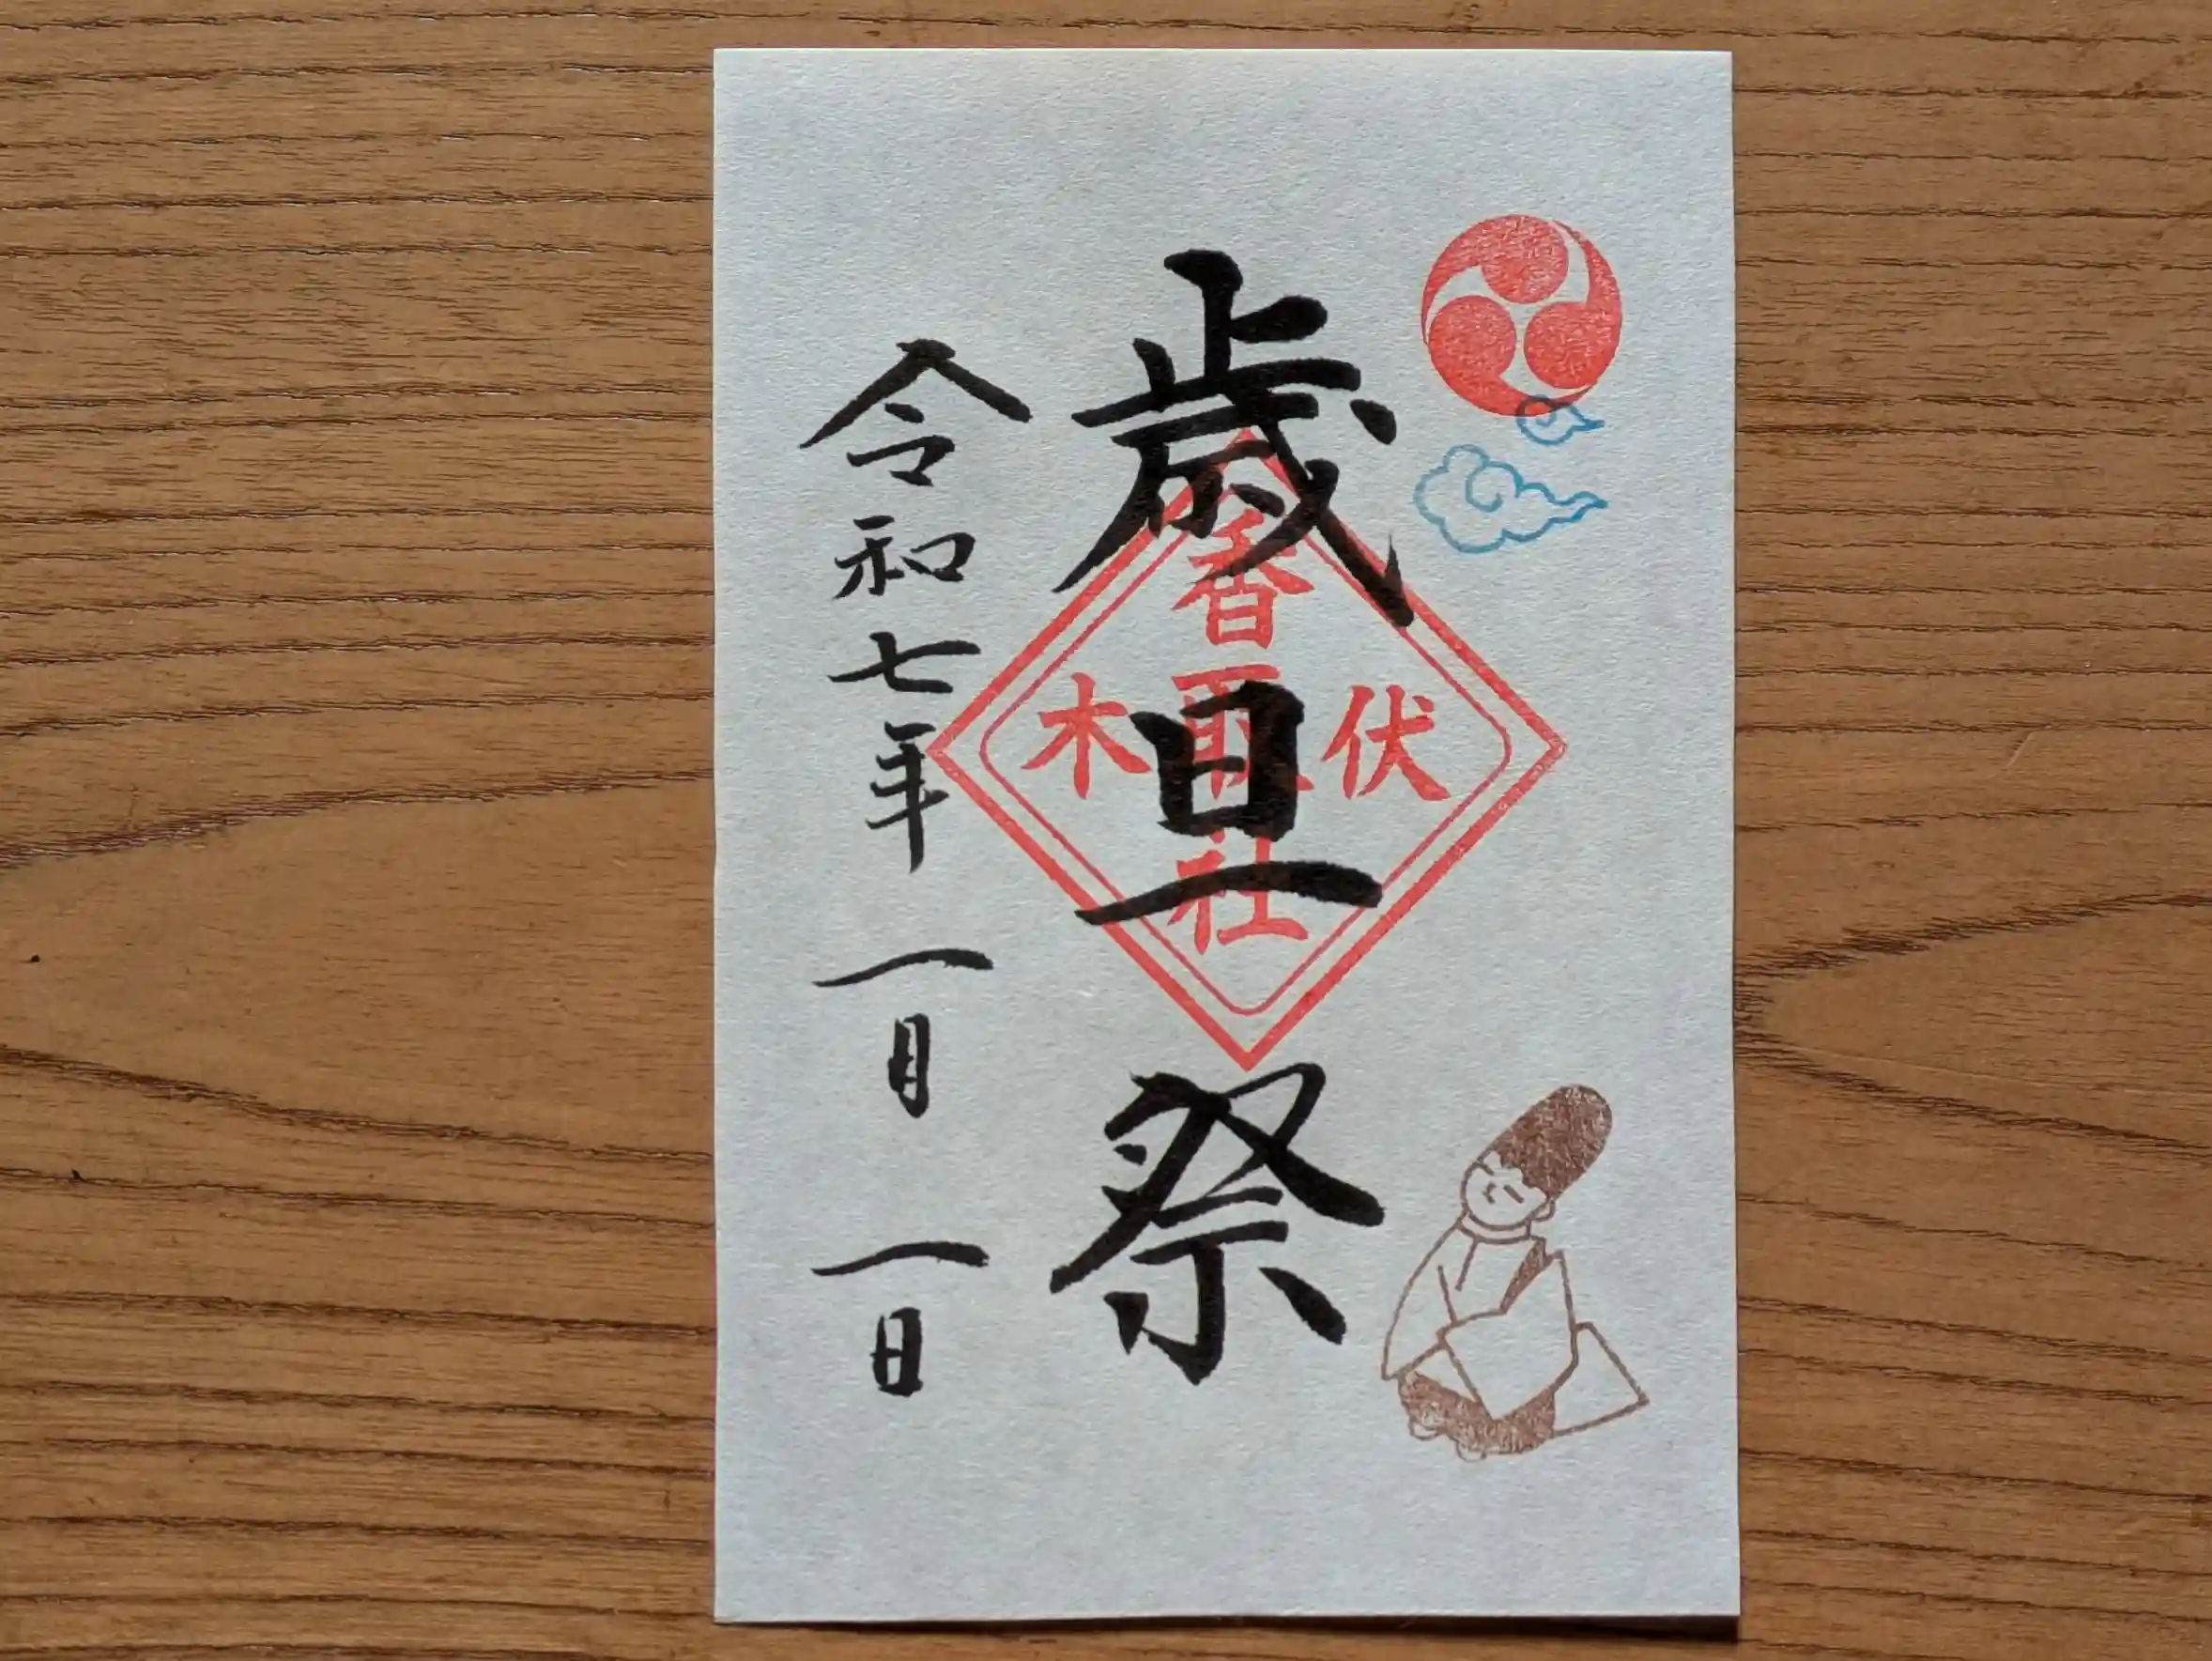 歳旦祭
伏木
香取社
令和七年一月一日